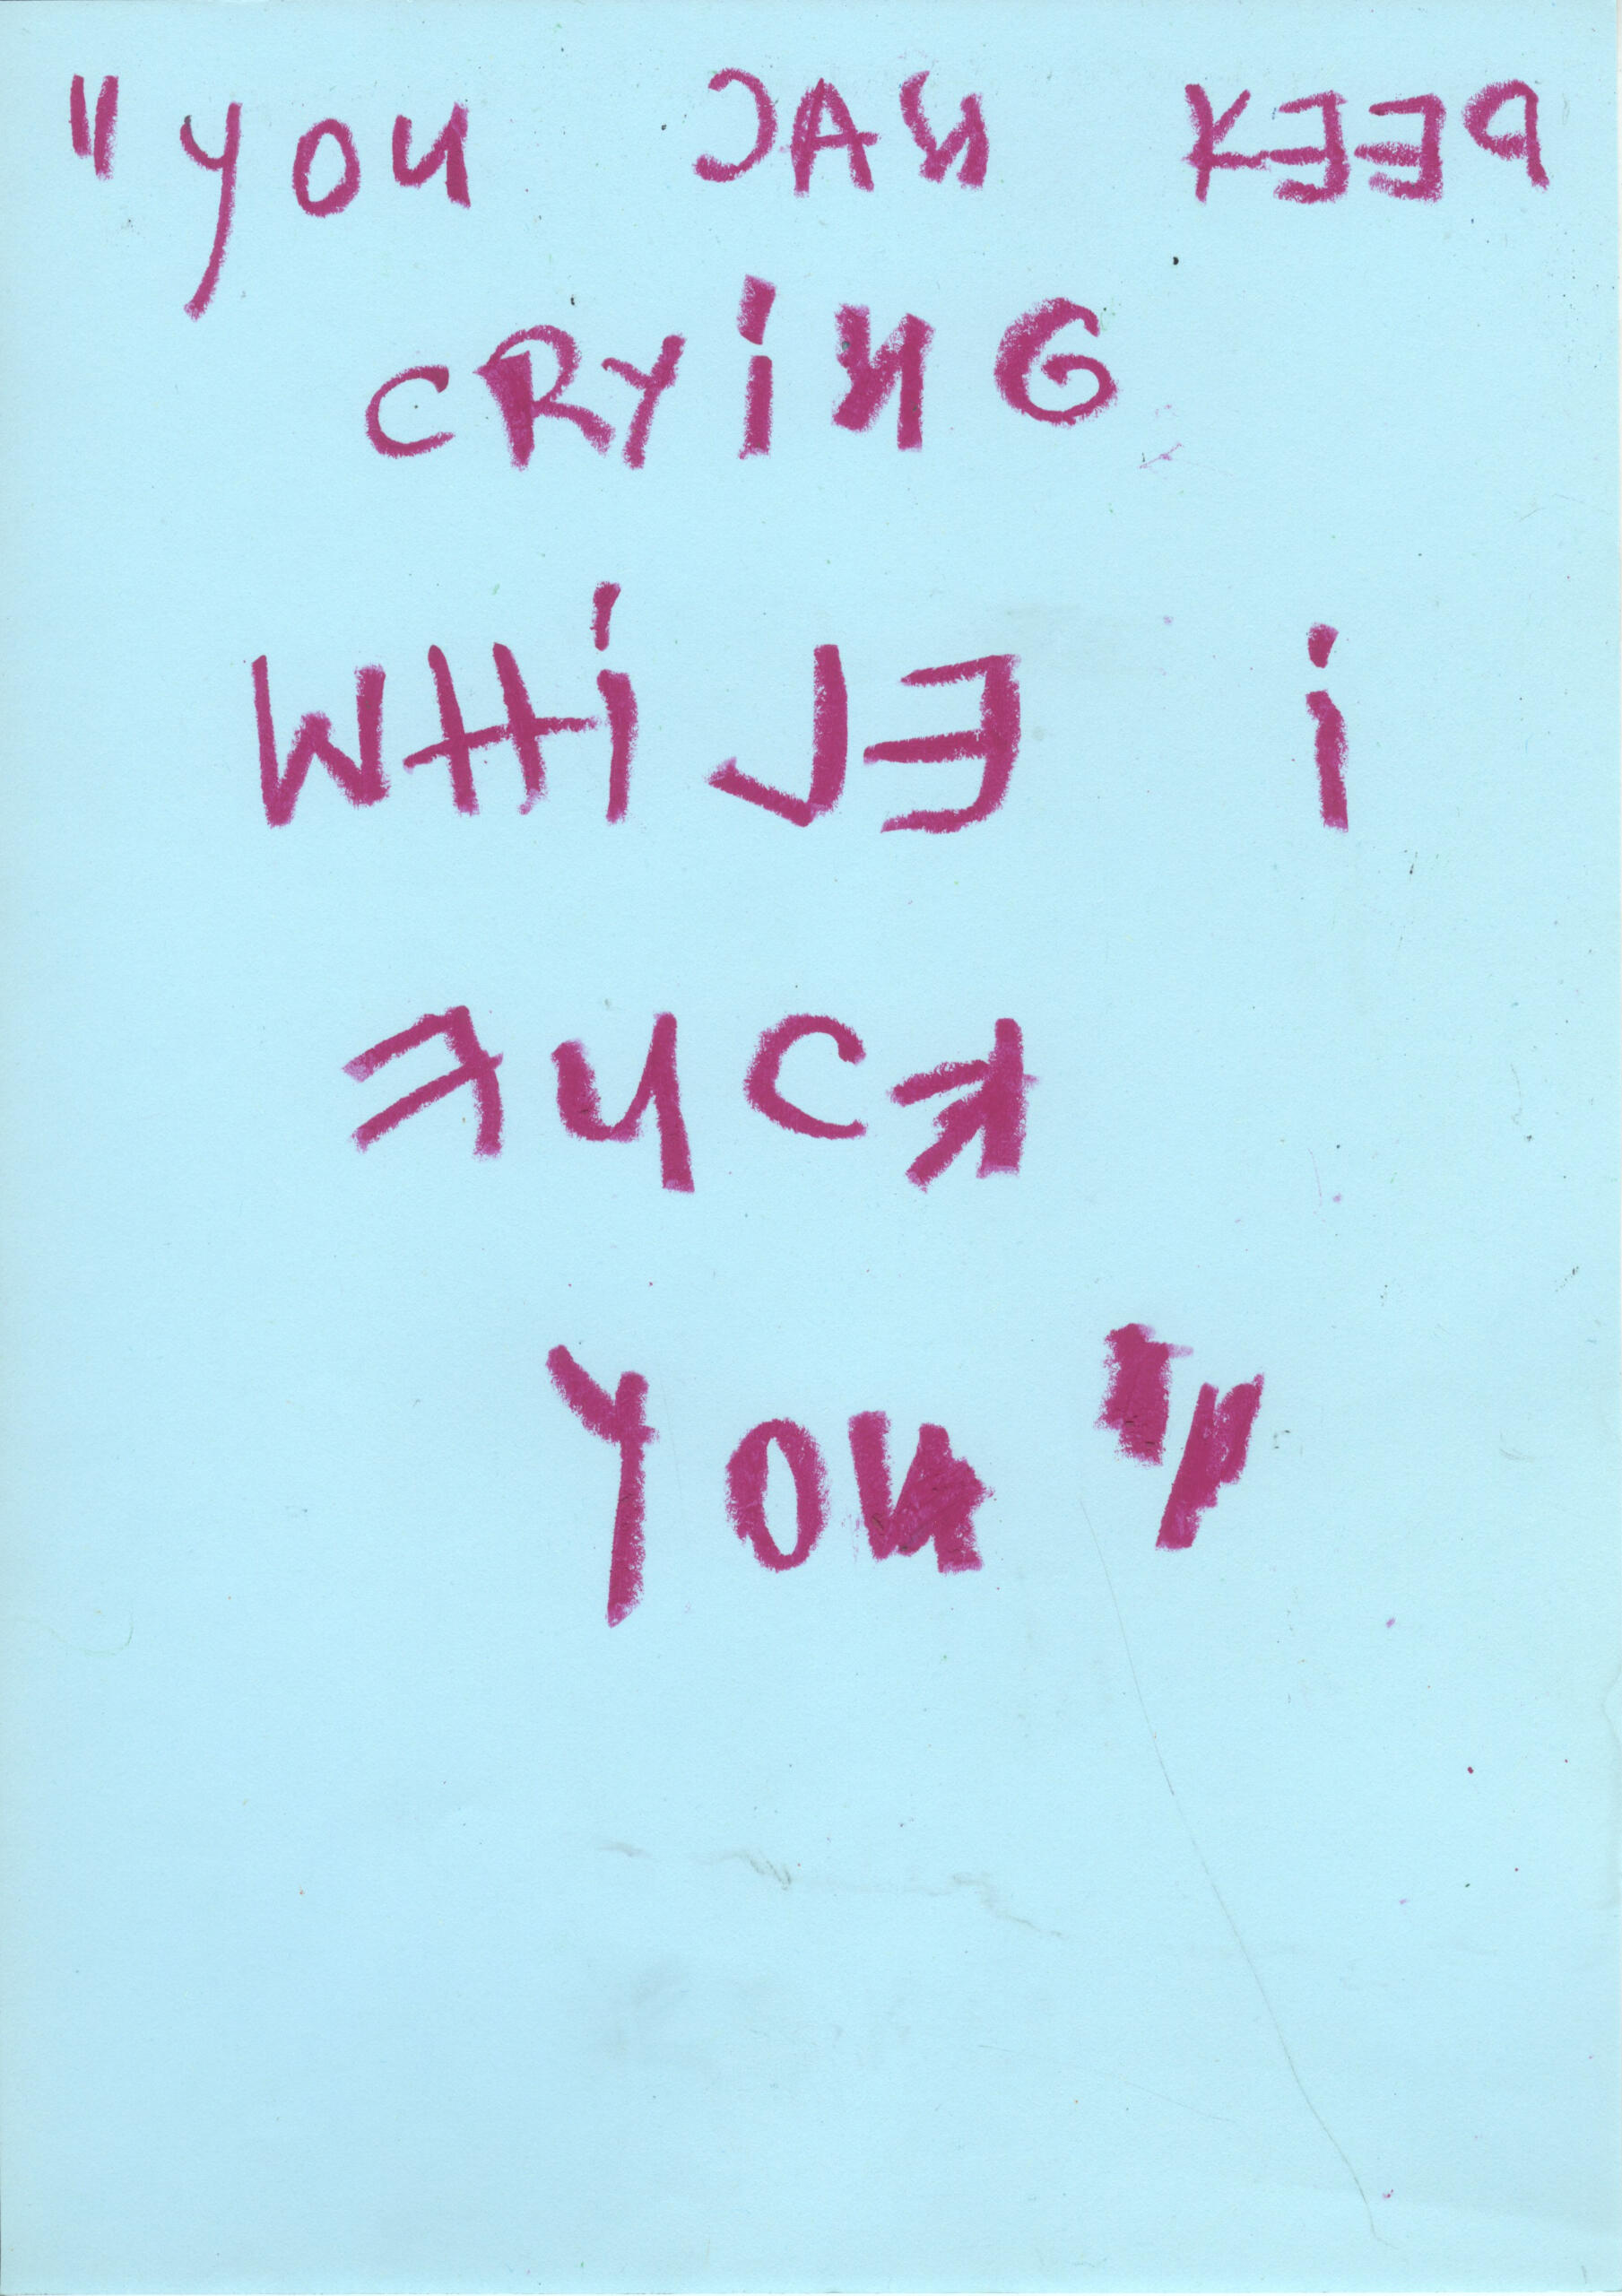 "YOU CAN KEEP
CRYiNG
WHiLE i
FUCK
YOU"